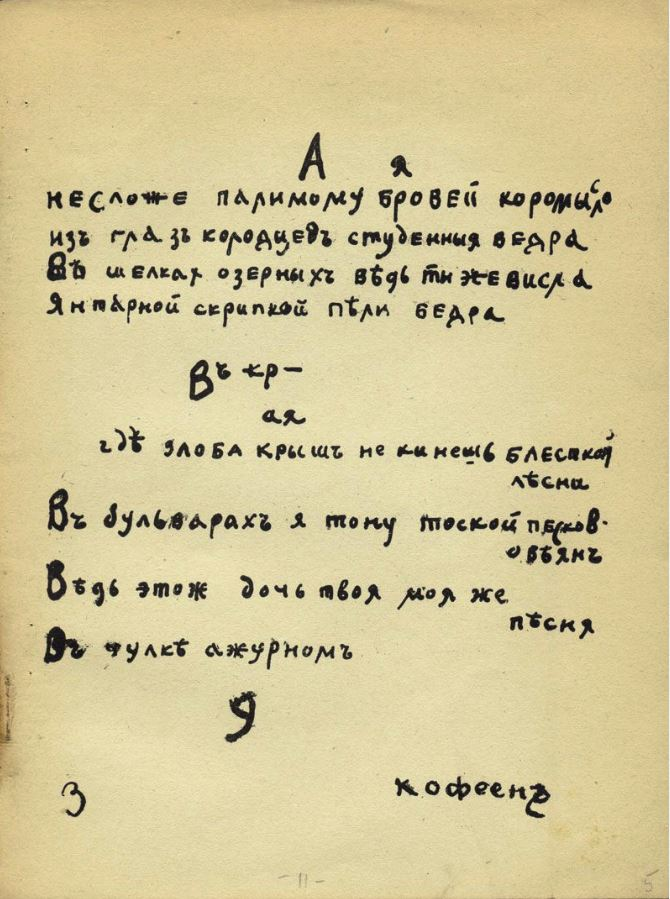 А я
несложе палимому бровей коромысло
изъ глазъ колодцевъ студенныя ведра
Въ шелках озерныхъ вѣдь ты же висла
Янтарной скрипкой пѣли бедра
Въ кр-
ая
гдѣ злоба крышъ не кинешь блесткой
лѣсни
Въ бульварахъ я тону тоской песков-
овѣянъ
Вѣдь этож дочь твоя моя же
пѣсня
Въ чулкѣ ажурномъ
У
кофеенъ
3
-11-
5